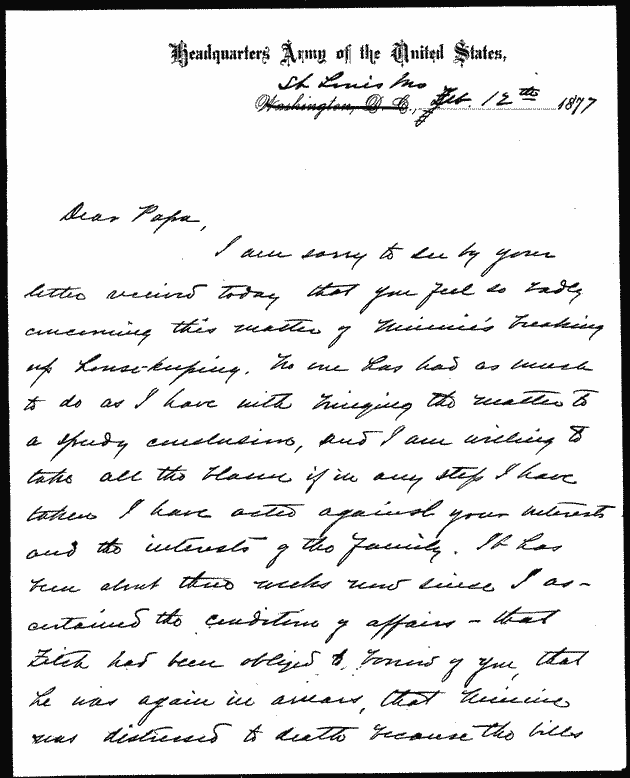 Headquarters Army of the United States,
St. Louis Mo
Washington, D. C., Feb. 12th 1877
Dear Papa,
I am sorry to see by your
letter received today that you feel so badly
concerning this matter of Minnie's breaking
up house-keeping. No one has had as much
to do as I have with bringing the matter to
a speedy conclusion, and I am willing to
take all the blame if in any step I have
taken I have acted against your interests
and the interests of the family. It has
been about three weeks now since I as-
certained the condition of affairs - that
Fitch had been obliged to borrow of you, that
he was again in arrears, that Minnie
was distressed to death because the bills